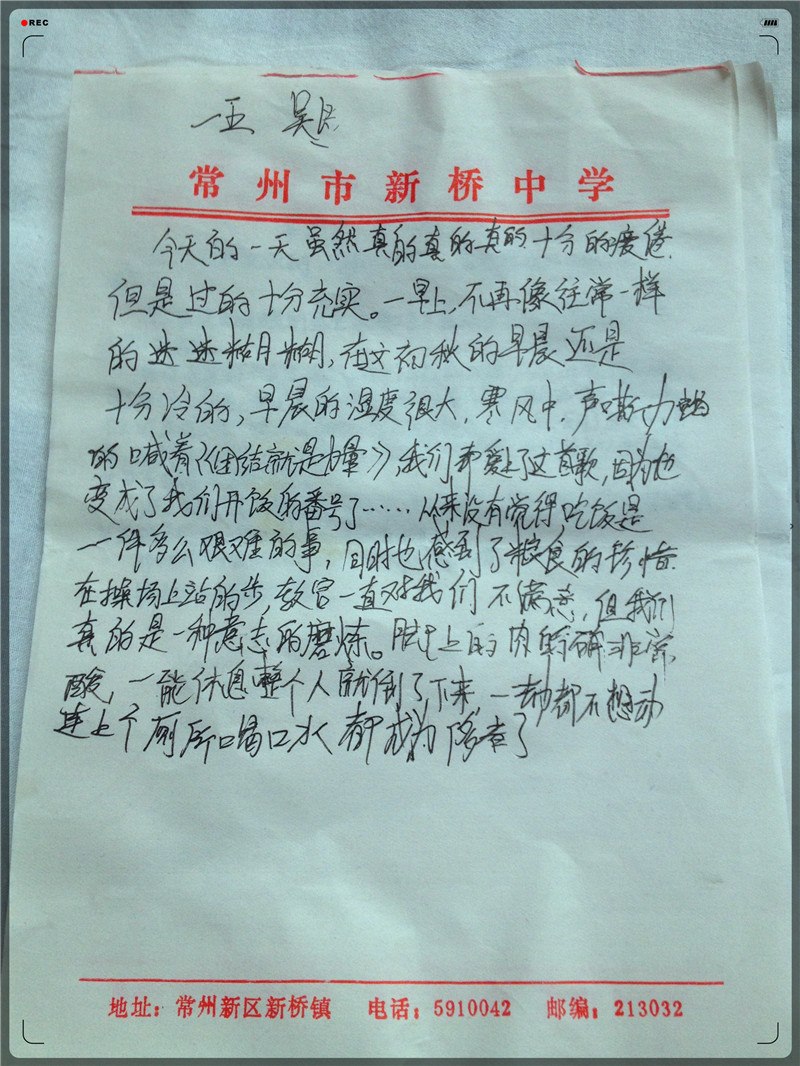 REC
一五 吴
常州市新桥中学
今天的一天虽然真的真的真的十分的疲倦.
但是过的十分充实。一早上,不再像往常一样
的迷迷糊糊,在这初秋的早晨还是
十分冷的,早晨的湿度很大,寒风中,声嘶力竭
的喊着《团结就是力量》,我们都爱上了这首歌,因为他
变成了我们开饭的番号了……从来没有觉得吃饭是
一件多么艰难的事,同时也感到了粮食的珍惜.
在操场上站的步,教官一直对我们不满意,但我们
真的是一种意志的磨炼。腿上的肉的确非常
酸,一能休息整个人就倒了下来,一动都不想动
连上个厕所喝口水都成为了
地址:常州新区新桥镇 电话:5910042 邮编:213032